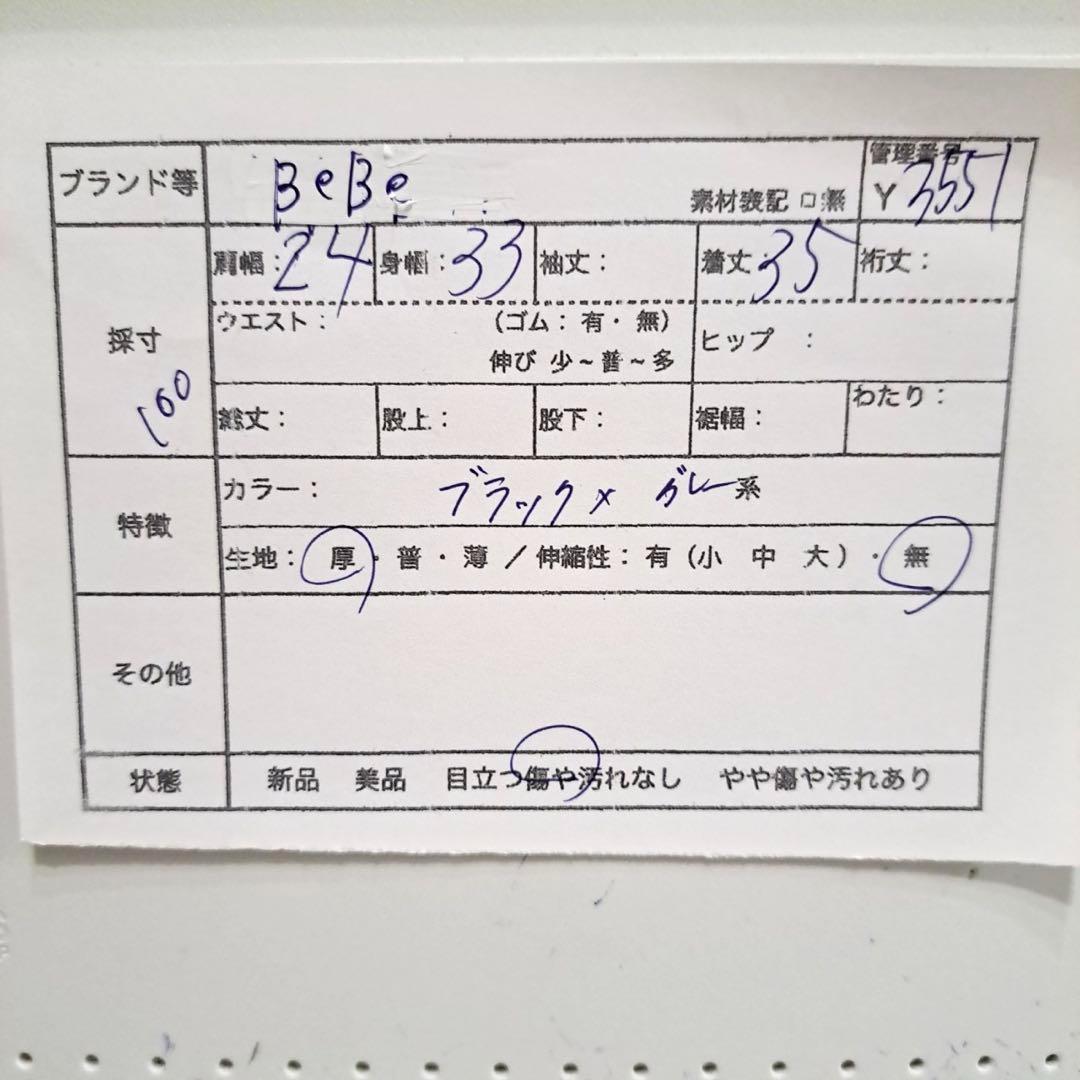 ブランド等 BeBe 素材表記 □ 無 管理番号 Y 3551
採寸 100
肩幅：24 身幅：33 袖丈： 着丈：35 裄丈：
ウエスト： （ゴム：有・無）
伸び 少～普～多
ヒップ ：
総丈： 股上： 股下： 裾幅： わたり：
特徴
カラー： ブラック×グレー系
生地： 厚・普・薄／伸縮性：有（小 中 大）・無
その他
状態 新品 美品 目立つ傷や汚れなし やや傷や汚れあり